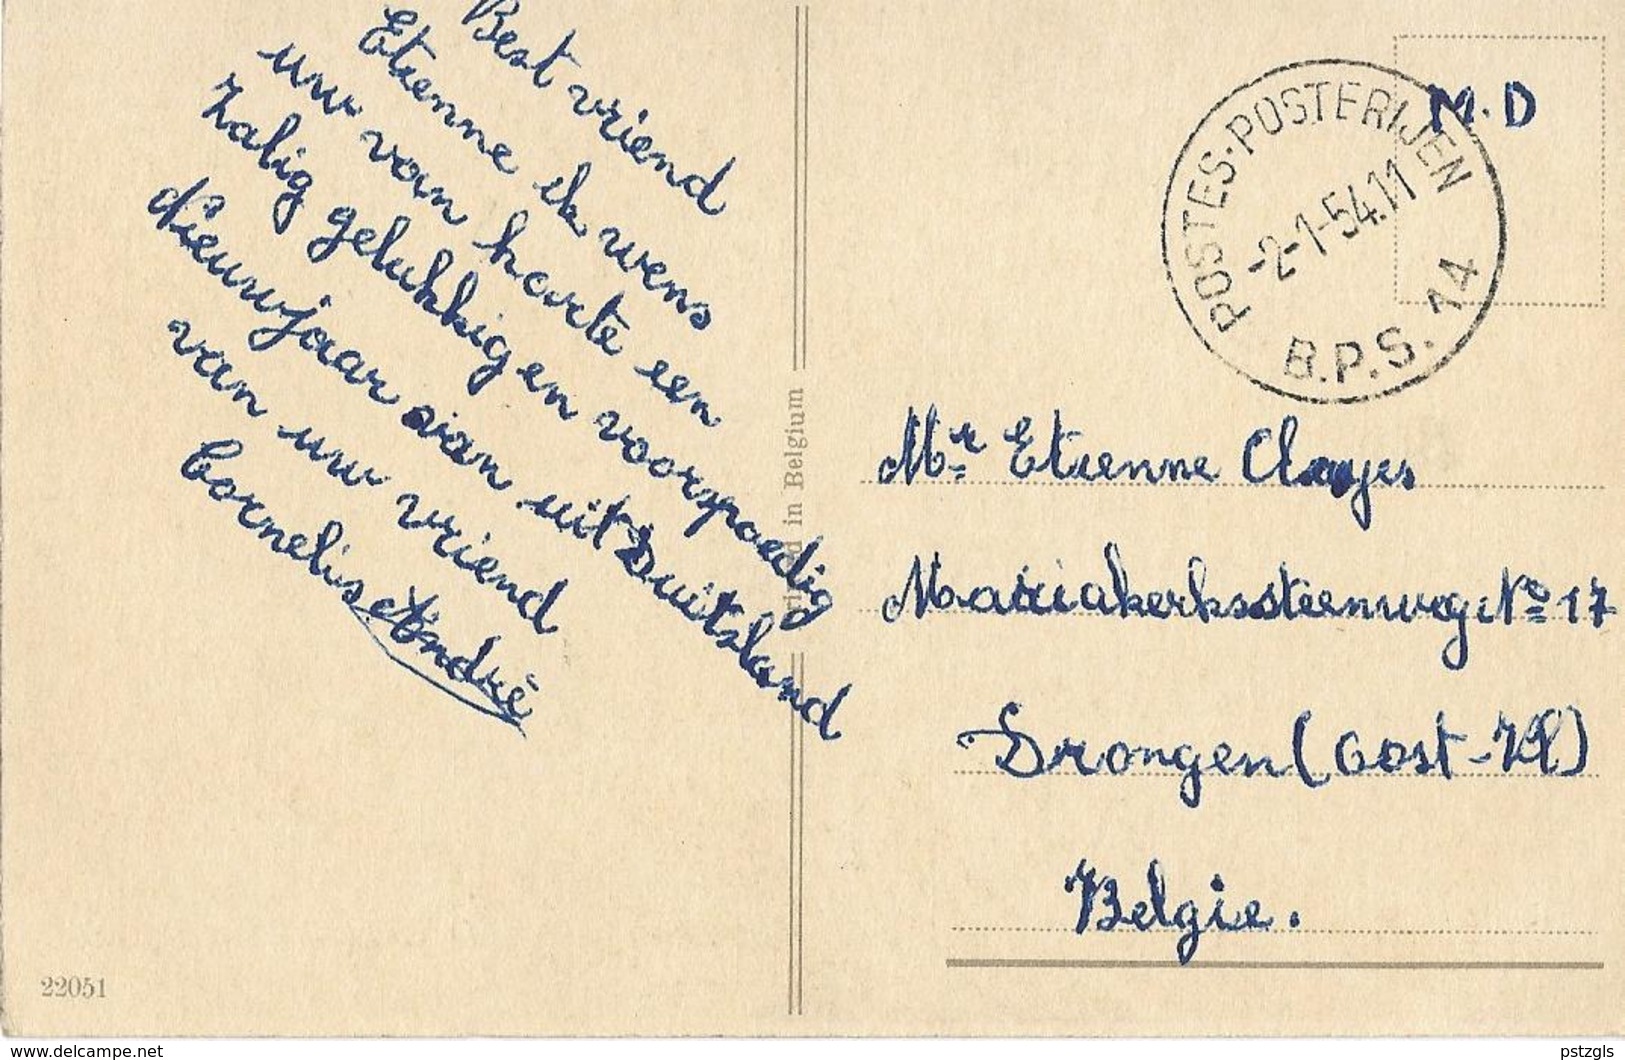 Best vriend
Etienne ik wens
uw van harte een
Zalig gelukkig en voorspoedig
Nieuwjaar van uit Duitsland
van uw vriend
Cornelis André
22051
in Belgium
M.D
POSTES-POSTERIJEN
-2-1-54.11
B.P.S. 14
Mr Etienne Clayes
Mariakerksesteenweg No 17
Drongen (Oost-Vl)
Belgie.
www.delcampe.net
pstzgls